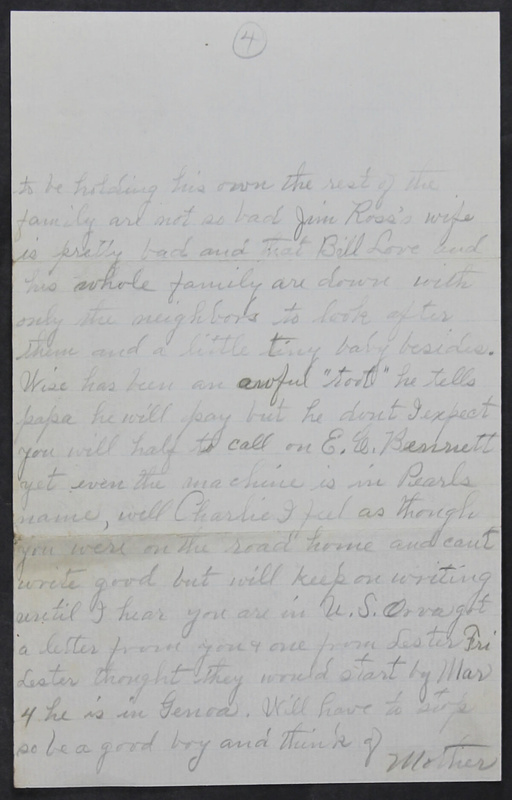 4
to be holding his own the rest of the
family are not so bad Jim Ross's wife
is pretty bad and that Bill Love and
his whole family are down with
only the neighbors to look after
them and a little tiny baby besides.
Wise has been an awful "toot" he tells
papa he will pay but he dont I expect
you will half to call on E. C. Bennett
yet even the machine is in Pearls
name, well Charlie I feel as though
you were on the road home and cant
write good but will keep on writing
until I hear you are in U. S. Orva got
a letter from you & one from Lester Fri
Lester thought they would start by Mar
4 he is in Genoa. Will have to stop
so be a good boy and think of
Mother